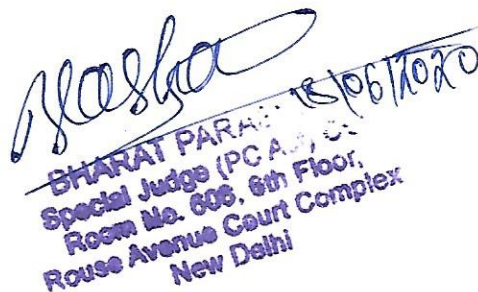 18/06/2020
BHARAT
Special Judge (PC
Room No. 606, 6th Floor,
Rouse Avenue Court Complex
New Delhi